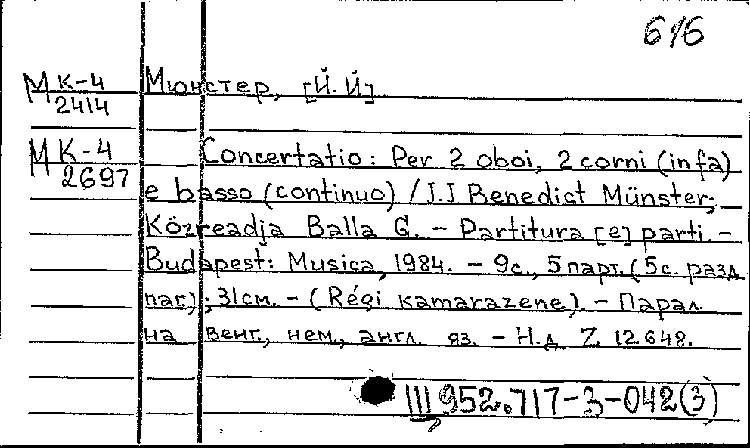 6/6
МК-4 Мюнстер, [Й. Й]
2414
МК-4 Concertatio: Per 2 oboi, 2 corni (in fa)
2697
e basso (continuo) / J.J Benedict Münster;
Közreadja Balla G. – Partitura [e] parti. –
Budapest: Musica, 1984. – 9с., 5 парт. (5с. разд
паг); 31см. – (Régi kamarazene). – Парал
на венг., нем., англ. яз. – Н.д. Z. 12.648.
III 952.717-3-042(3)